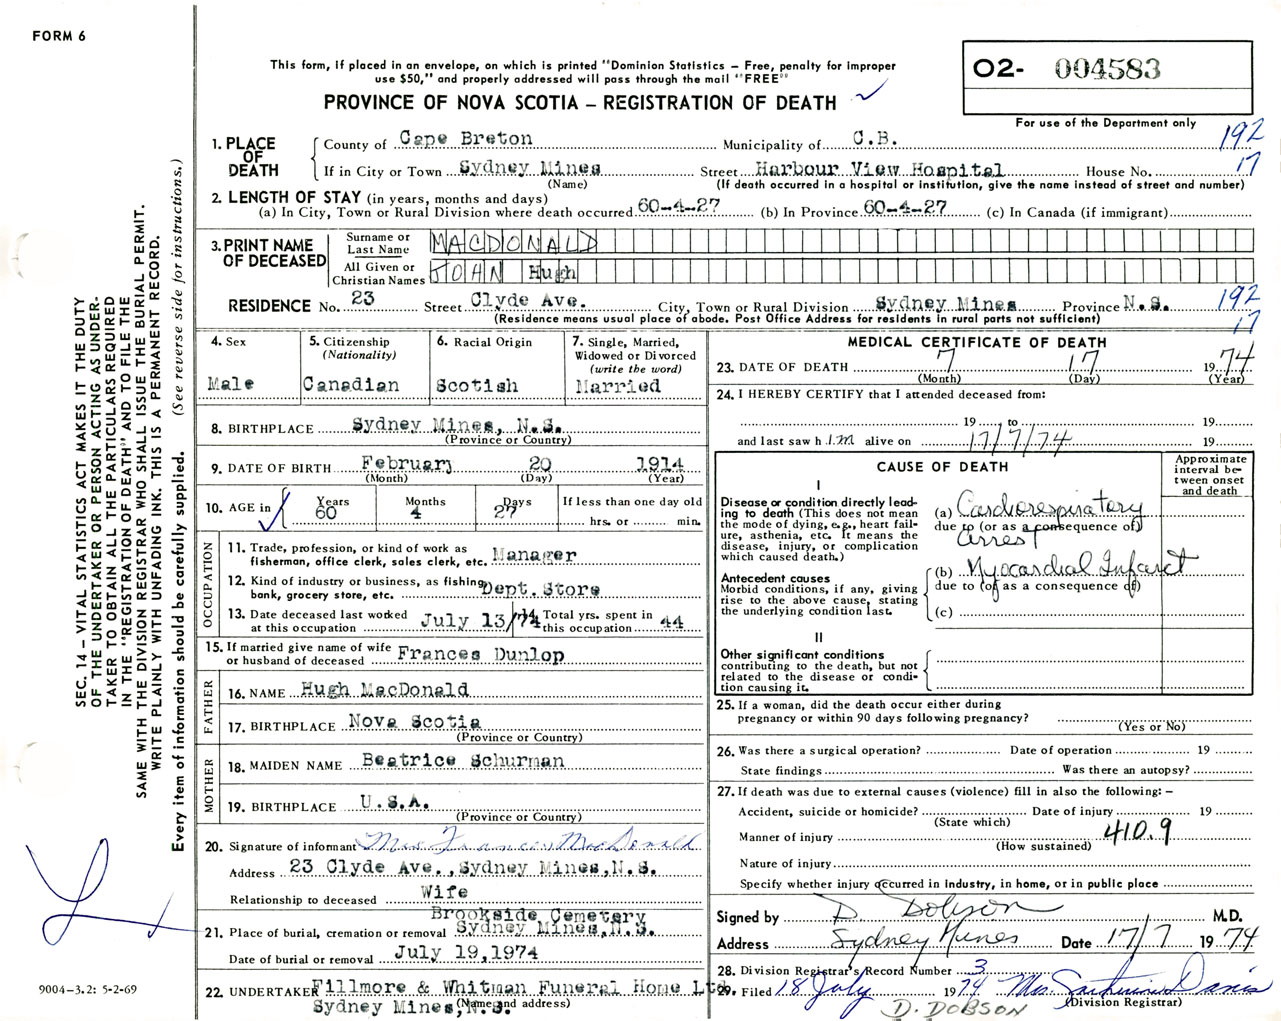 FORM 6
This form, if placed in an envelope, on which is printed "Dominion Statistics – Free, penalty for improper
use $50," and properly addressed will pass through the mail "FREE"
PROVINCE OF NOVA SCOTIA – REGISTRATION OF DEATH
02- 004583
For use of the Department only
192
17
1. PLACE OF DEATH
County of Cape Breton Municipality of C.B.
If in City or Town Sydney Mines Street Harbour View Hospital House No.
(Name) (If death occurred in a hospital or institution, give the name instead of street and number)
2. LENGTH OF STAY (in years, months and days)
(a) In City, Town or Rural Division where death occurred 60-4-27 (b) In Province 60-4-27 (c) In Canada (if immigrant)
3. PRINT NAME OF DECEASED
Surname or Last Name MACDONALD
All Given or Christian Names JOHN Hugh
RESIDENCE No. 23 Street Clyde Ave. City, Town or Rural Division Sydney Mines Province N.S.
(Residence means usual place of abode. Post Office Address for residents in rural parts not sufficient)
192
17
4. Sex
Male
5. Citizenship
(Nationality)
Canadian
6. Racial Origin
Scotish
7. Single, Married,
Widowed or Divorced
(write the word)
Married
8. BIRTHPLACE Sydney Mines, N.S.
(Province or Country)
9. DATE OF BIRTH February 20 1914
(Month) (Day) (Year)
10. AGE in
Years 60
Months 4
Days 27
If less than one day old
hrs. or min.
OCCUPATION
11. Trade, profession, or kind of work as
fisherman, office clerk, sales clerk, etc. Manager
12. Kind of industry or business, as fishing,
bank, grocery store, etc. Dept. Store
13. Date deceased last worked
at this occupation July 13/74
14. Total yrs. spent in
this occupation 44
15. If married give name of wife
or husband of deceased Frances Dunlop
FATHER
16. NAME Hugh MacDonald
17. BIRTHPLACE Nova Scotia
(Province or Country)
MOTHER
18. MAIDEN NAME Beatrice Schurman
19. BIRTHPLACE U.S.A.
(Province or Country)
20. Signature of informant Mrs. Frances MacDonald
Address 23 Clyde Ave., Sydney Mines, N.S.
Relationship to deceased Wife
Brookside Cemetery
21. Place of burial, cremation or removal Sydney Mines, N.S.
Date of burial or removal July 19, 1974
22. UNDERTAKER Fillmore & Whitman Funeral Home Ltd.
(Name and address)
Sydney Mines, N.S.
MEDICAL CERTIFICATE OF DEATH
23. DATE OF DEATH 7 17 1974
(Month) (Day) (Year)
24. I HEREBY CERTIFY that I attended deceased from:
19 to 19
and last saw h im alive on 17/7/74 19
CAUSE OF DEATH
Approximate
interval be-
tween onset
and death
I
Disease or condition directly lead-
ing to death (This does not mean
the mode of dying, e.g., heart fail-
ure, asthenia, etc. It means the
disease, injury, or complication
which caused death.)
(a) Cardiorespiratory
due to (or as a consequence of)
Arrest
Antecedent causes
Morbid conditions, if any, giving
rise to the above cause, stating
the underlying condition last.
(b) Myocardial Infarct
due to (or as a consequence of)
(c)
II
Other significant conditions
contributing to the death, but not
related to the disease or condi-
tion causing it.
25. If a woman, did the death occur either during
pregnancy or within 90 days following pregnancy?
(Yes or No)
26. Was there a surgical operation? Date of operation 19
State findings Was there an autopsy?
27. If death was due to external causes (violence) fill in also the following: –
Accident, suicide or homicide? Date of injury 19
(State which)
Manner of injury 410.9
(How sustained)
Nature of injury
Specify whether injury occurred in industry, in home, or in public place
Signed by D. Dobson M.D.
Address Sydney Mines Date 17/7 1974
28. Division Registrar's Record Number 3
29. Filed 18 July 1974 Mrs. Davis
(Division Registrar)
D. DOBSON
SEC. 14 – VITAL STATISTICS ACT MAKES IT THE DUTY
OF THE UNDERTAKER OR PERSON ACTING AS UNDER-
TAKER TO OBTAIN ALL THE PARTICULARS REQUIRED
IN THE "REGISTRATION OF DEATH" AND TO FILE THE
SAME WITH THE DIVISION REGISTRAR WHO SHALL ISSUE THE BURIAL PERMIT.
WRITE PLAINLY WITH UNFADING INK. THIS IS A PERMANENT RECORD.
Every item of information should be carefully supplied. (See reverse side for instructions.)
9004-3.2: 5-2-69